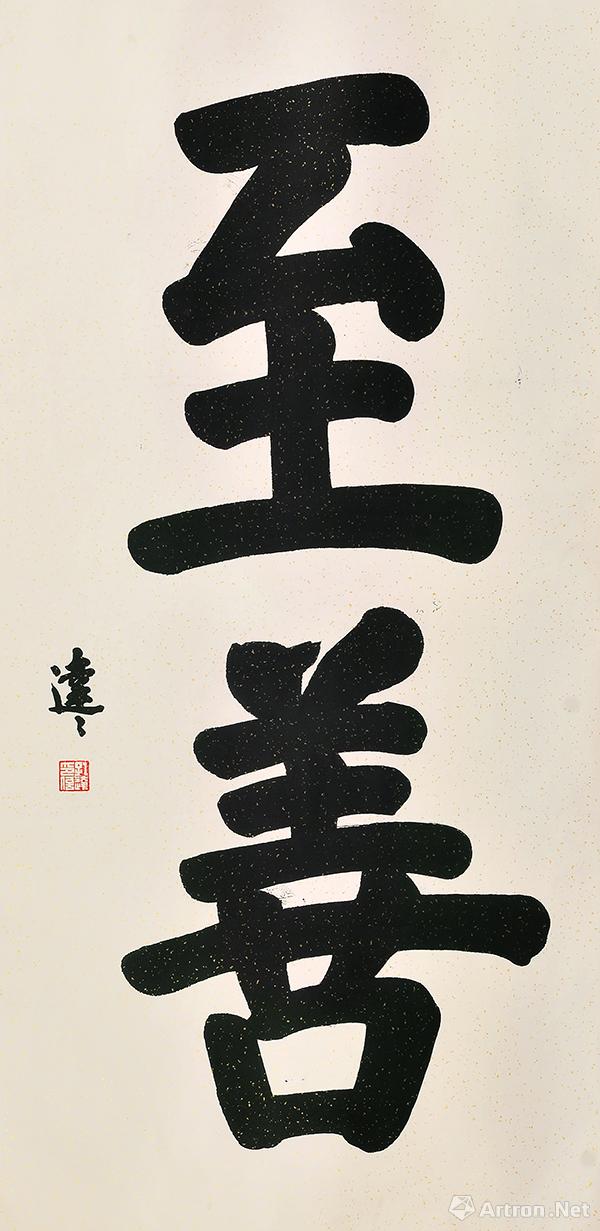 至善
達
Artron.Net